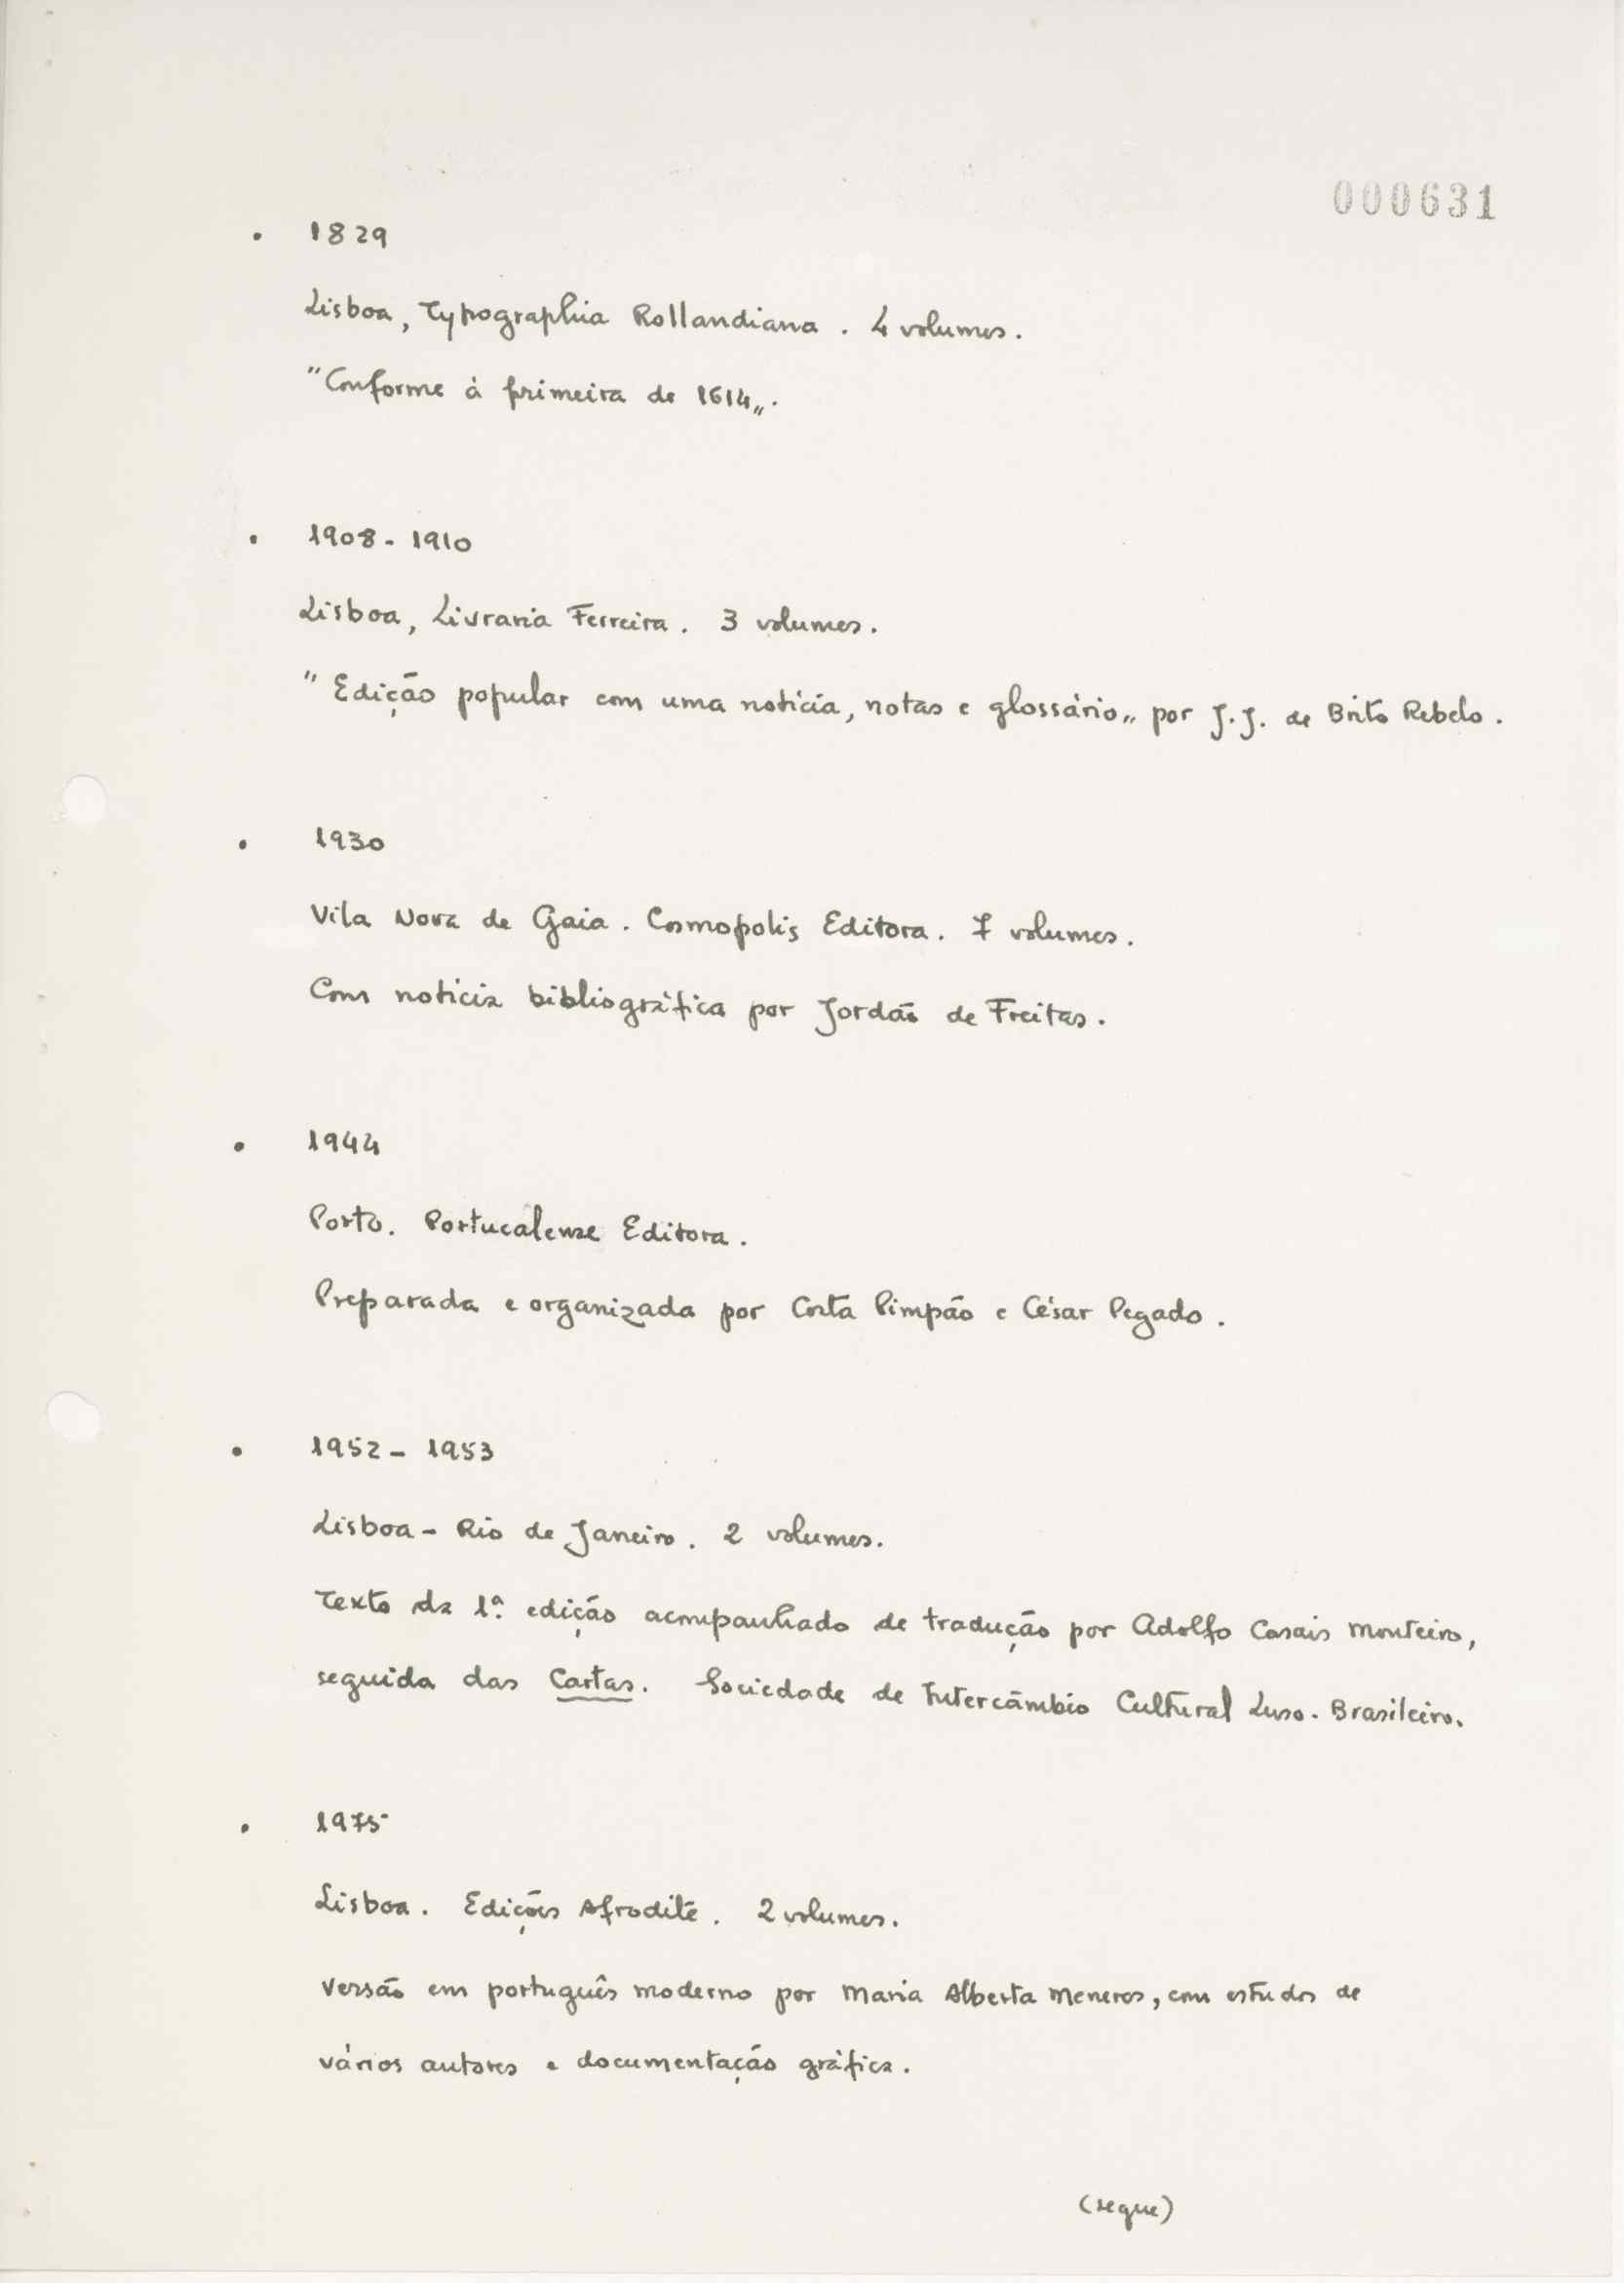 000631
• 1829
Lisboa, Typographia Rollandiana. 4 volumes.
"Conforme à primeira de 1614".
• 1908-1910
Lisboa, Livraria Ferreira. 3 volumes.
"Edição popular com uma notícia, notas e glossário" por J. J. de Brito Rebelo.
• 1930
Vila Nova de Gaia. Cosmopolis Editora. 7 volumes.
Com notícia bibliográfica por Jordão de Freitas.
• 1944
Porto. Portucalense Editora.
Preparada e organizada por Costa Pimpão e César Pegado.
• 1952-1953
Lisboa-Rio de Janeiro. 2 volumes.
Texto da 1ª. edição acompanhado de tradução por Adolfo Casais Monteiro,
seguida das Cartas. Sociedade de Intercâmbio Cultural Luso-Brasileiro.
• 1975
Lisboa. Edições Afrodite. 2 volumes.
Versão em português moderno por Maria Alberta Meneres, com estudos de
vários autores e documentação gráfica.
(segue)